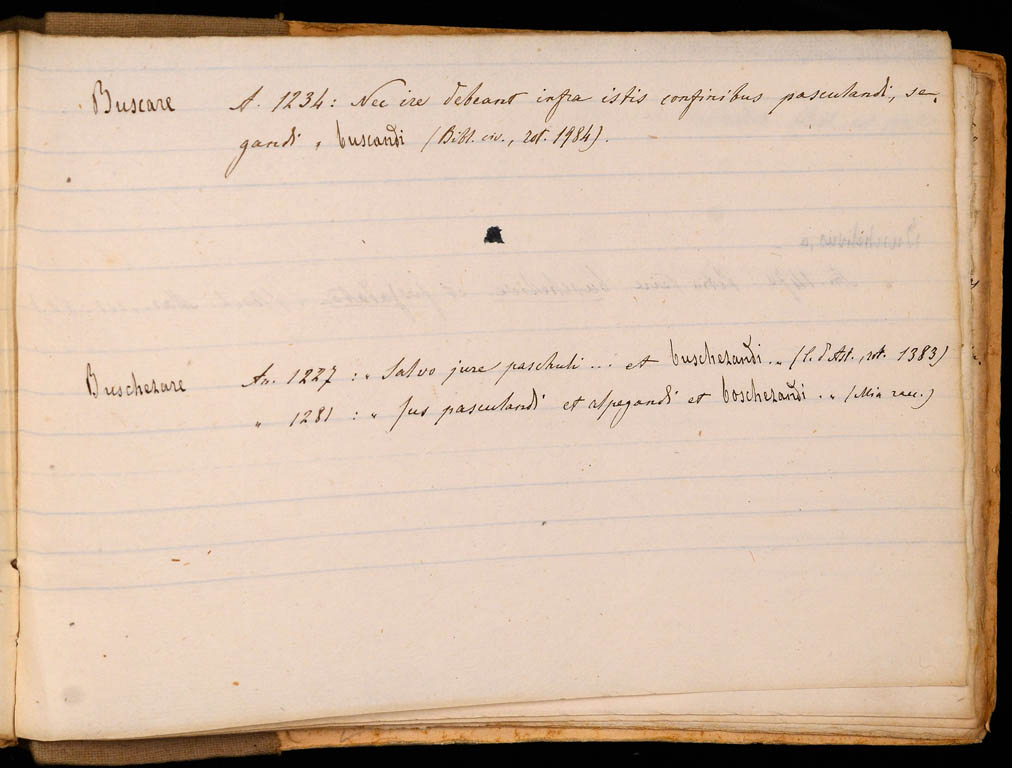 Buscare A. 1234: Nec ire debeant infra istis confinibus pasculandi, se-
gandi, buscandi (Bibl. civ., rot. 1984).
Buschezare An. 1227 : „ Salvo jure paschuli ... et buschezandi „ (C. d'Ast., rot. 1383)
„ 1281 : „ Jus pasculandi et alpegandi et boschezandi . „ (Mia racc.)